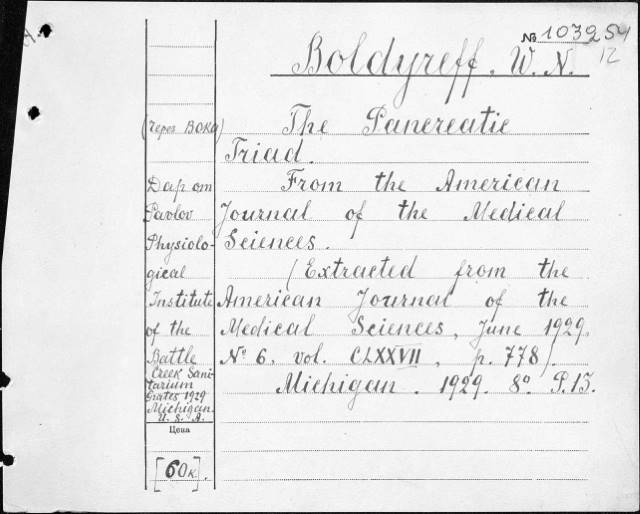 № 103254
12
Boldyreff, W. N.
(через ВОКС) The Pancreatic
Triad.
Дар от From the American
Pavlov Journal of the Medical
Physiolo- Sciences.
gical (Extracted from the
Institute American Journal of the
of the Medical Sciences, June 1929.
Battle № 6. vol. CLXXVII, p. 778).
Creek Sani-
tarium Michigan. 1929. 8° P.13.
Michigan
U. S. A.
Цена
[60к].